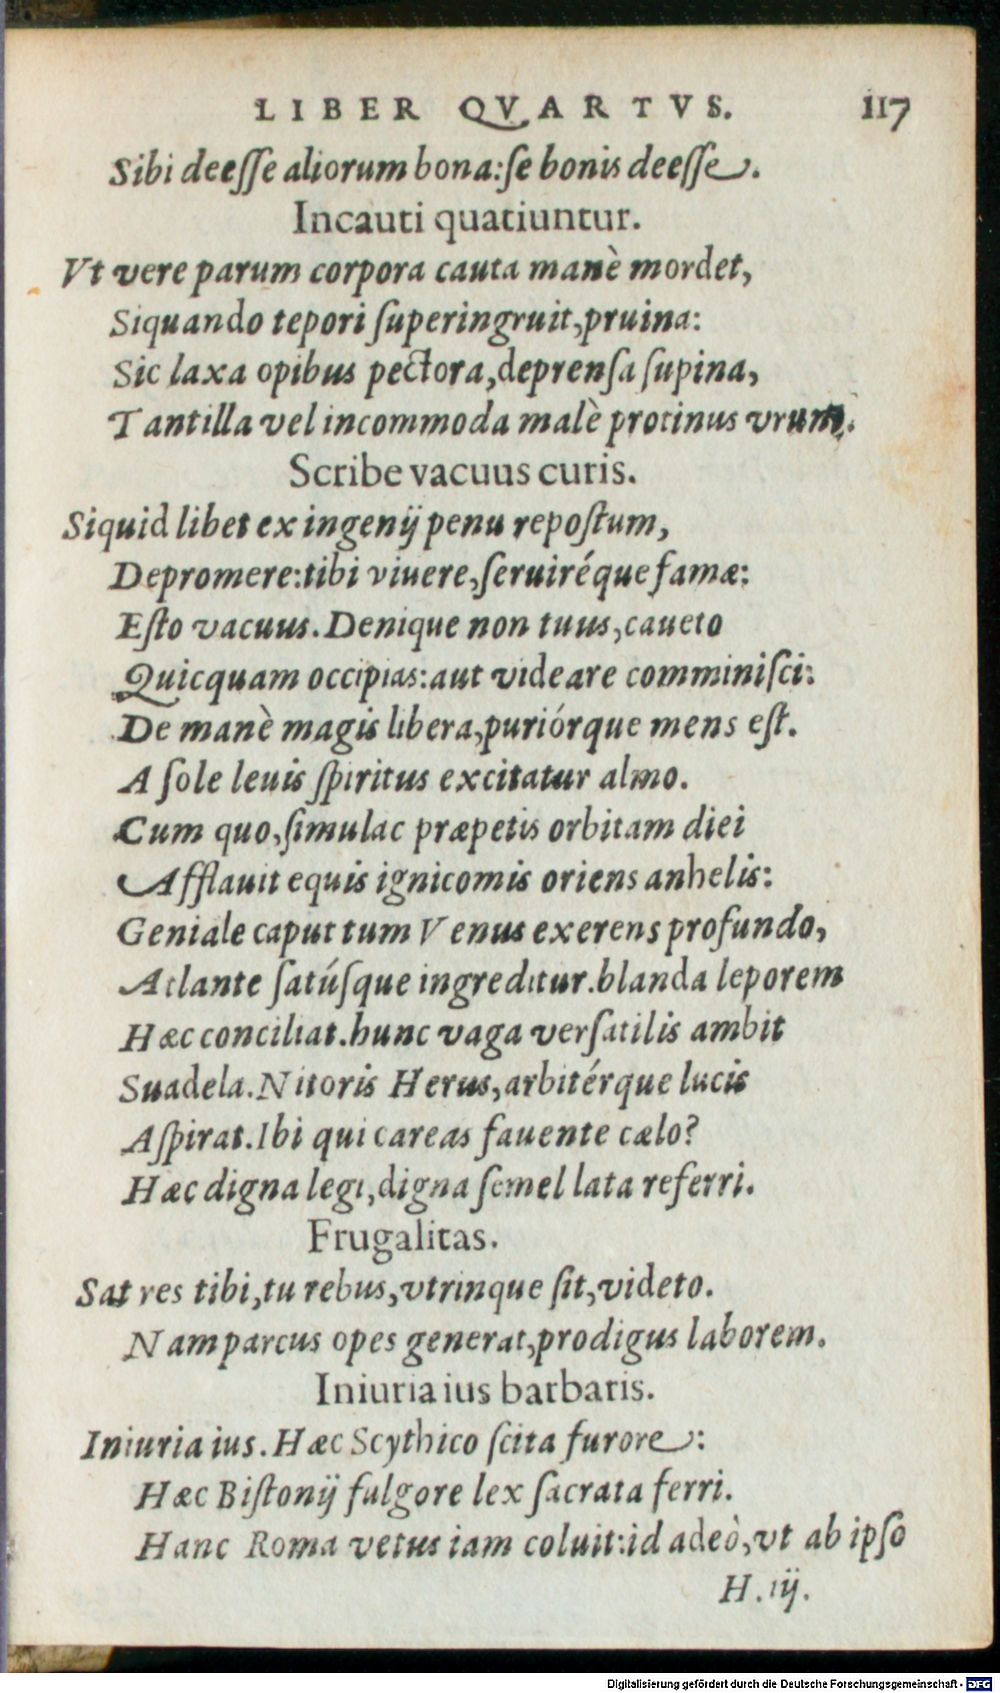 LIBER QVARTVS. 117
Sibi deesse aliorum bona:se bonis deesse.
Incauti quatiuntur.
Vt vere parum corpora cauta manè mordet,
Siquando tepori superingruit,pruina:
Sic laxa opibus pectora,deprensa supina,
Tantilla vel incommoda malè protinus vrunt.
Scribe vacuus curis.
Siquid libet ex ingenij penu repostum,
Depromere:tibi viuere,seruiréque famæ:
Esto vacuus. Denique non tuus,caueto
Quicquam occipias:aut videare comminisci:
De manè magis libera,puriórque mens est.
A sole leuis spiritus excitatur almo.
Cum quo,simulac præpetis orbitam diei
Afflauit equis ignicomis oriens anhelis:
Geniale caput tum Venus exerens profundo,
Atlante satúsque ingreditur.blanda leporem
Hæc conciliat.hunc vaga versatilis ambit
Suadela.Nitoris Herus,arbitérque lucis
Aspirat.Ibi qui careas fauente cælo?
Hæc digna legi,digna semel lata referri.
Frugalitas.
Sat res tibi,tu rebus,vtrinque sit,videto.
Nam parcus opes generat,prodigus laborem.
Iniuria ius barbaris.
Iniuria ius. Hæc Scythico scita furore:
Hæc Bistonij fulgore lex sacrata ferri.
Hanc Roma vetus iam coluit:id adeò,vt ab ipso
H.ij.
Digitalisierung gefördert durch die Deutsche Forschungsgemeinschaft - DFG